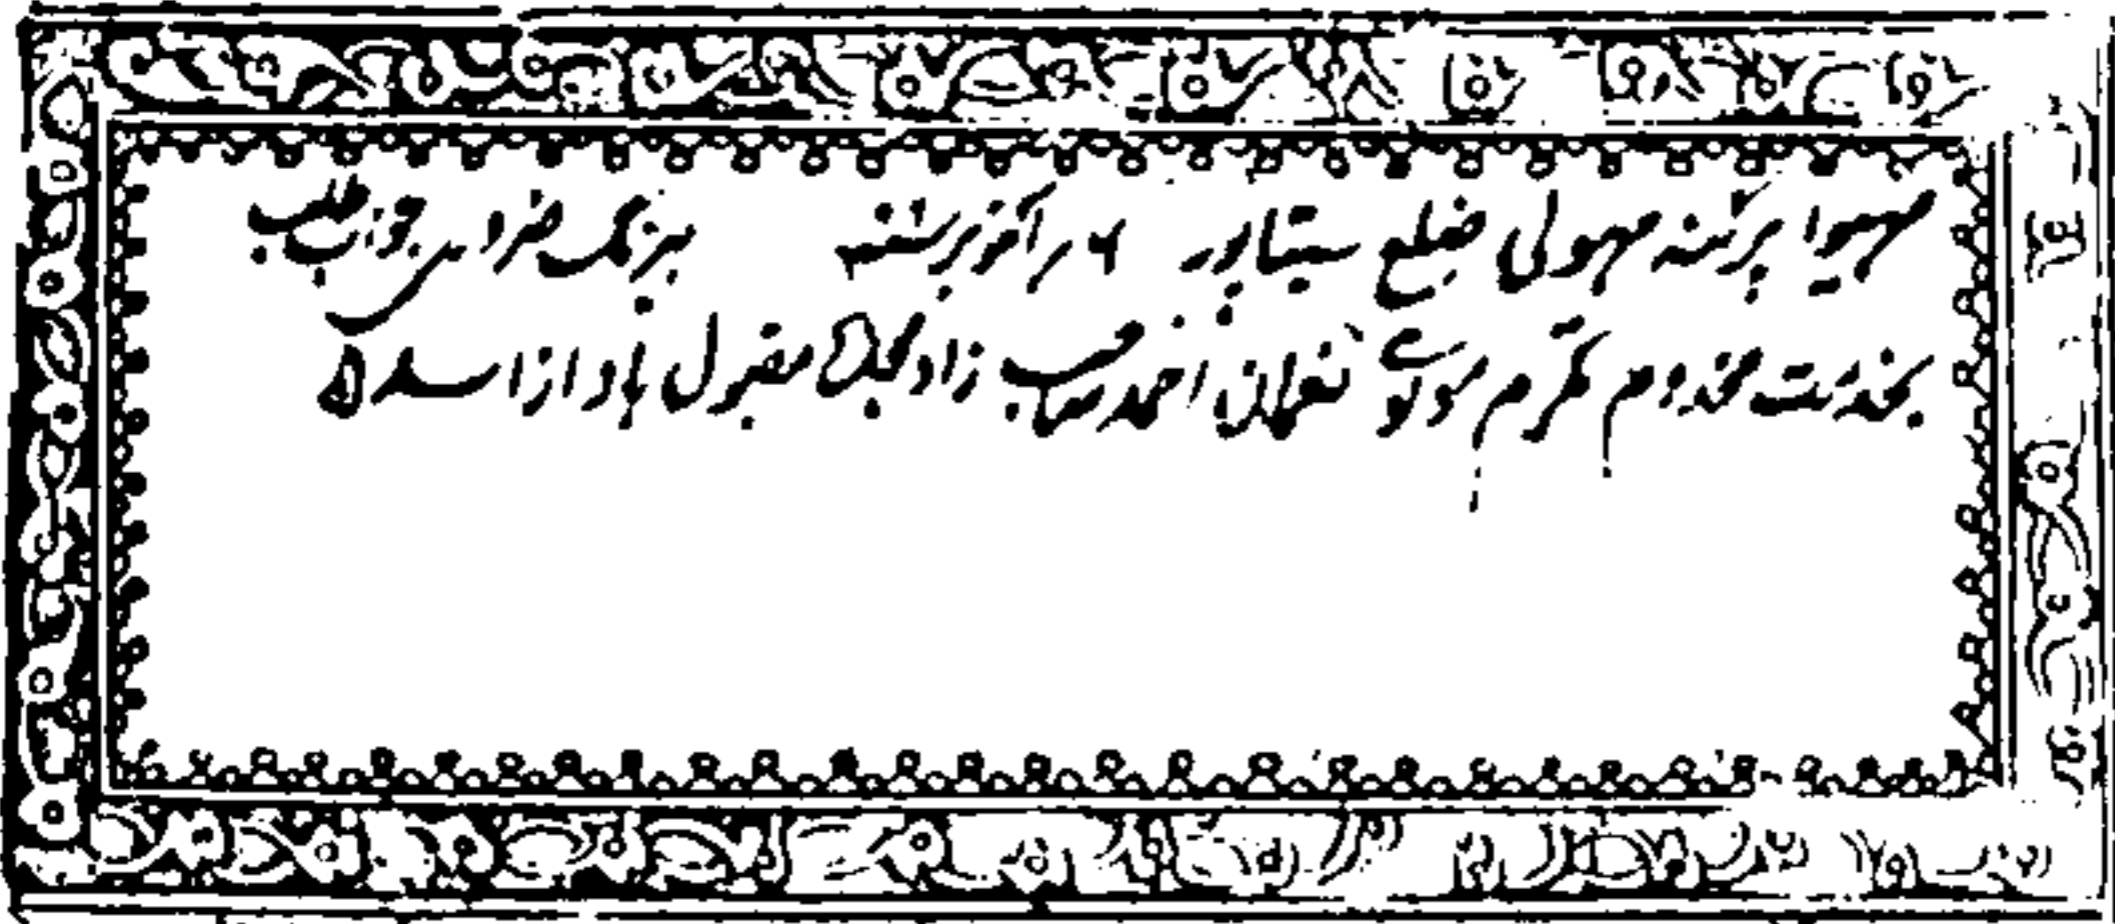 مہیوا پرگنہ مہولی ضلع سیتاپور ۶ ر اکتوبر شنبہ بیرنگ ضروری جواب طلب
بخدمت مخدوم مکرم مولوی نعمان احمد صاحب زاد مجدہ مقبول باد از اسلام